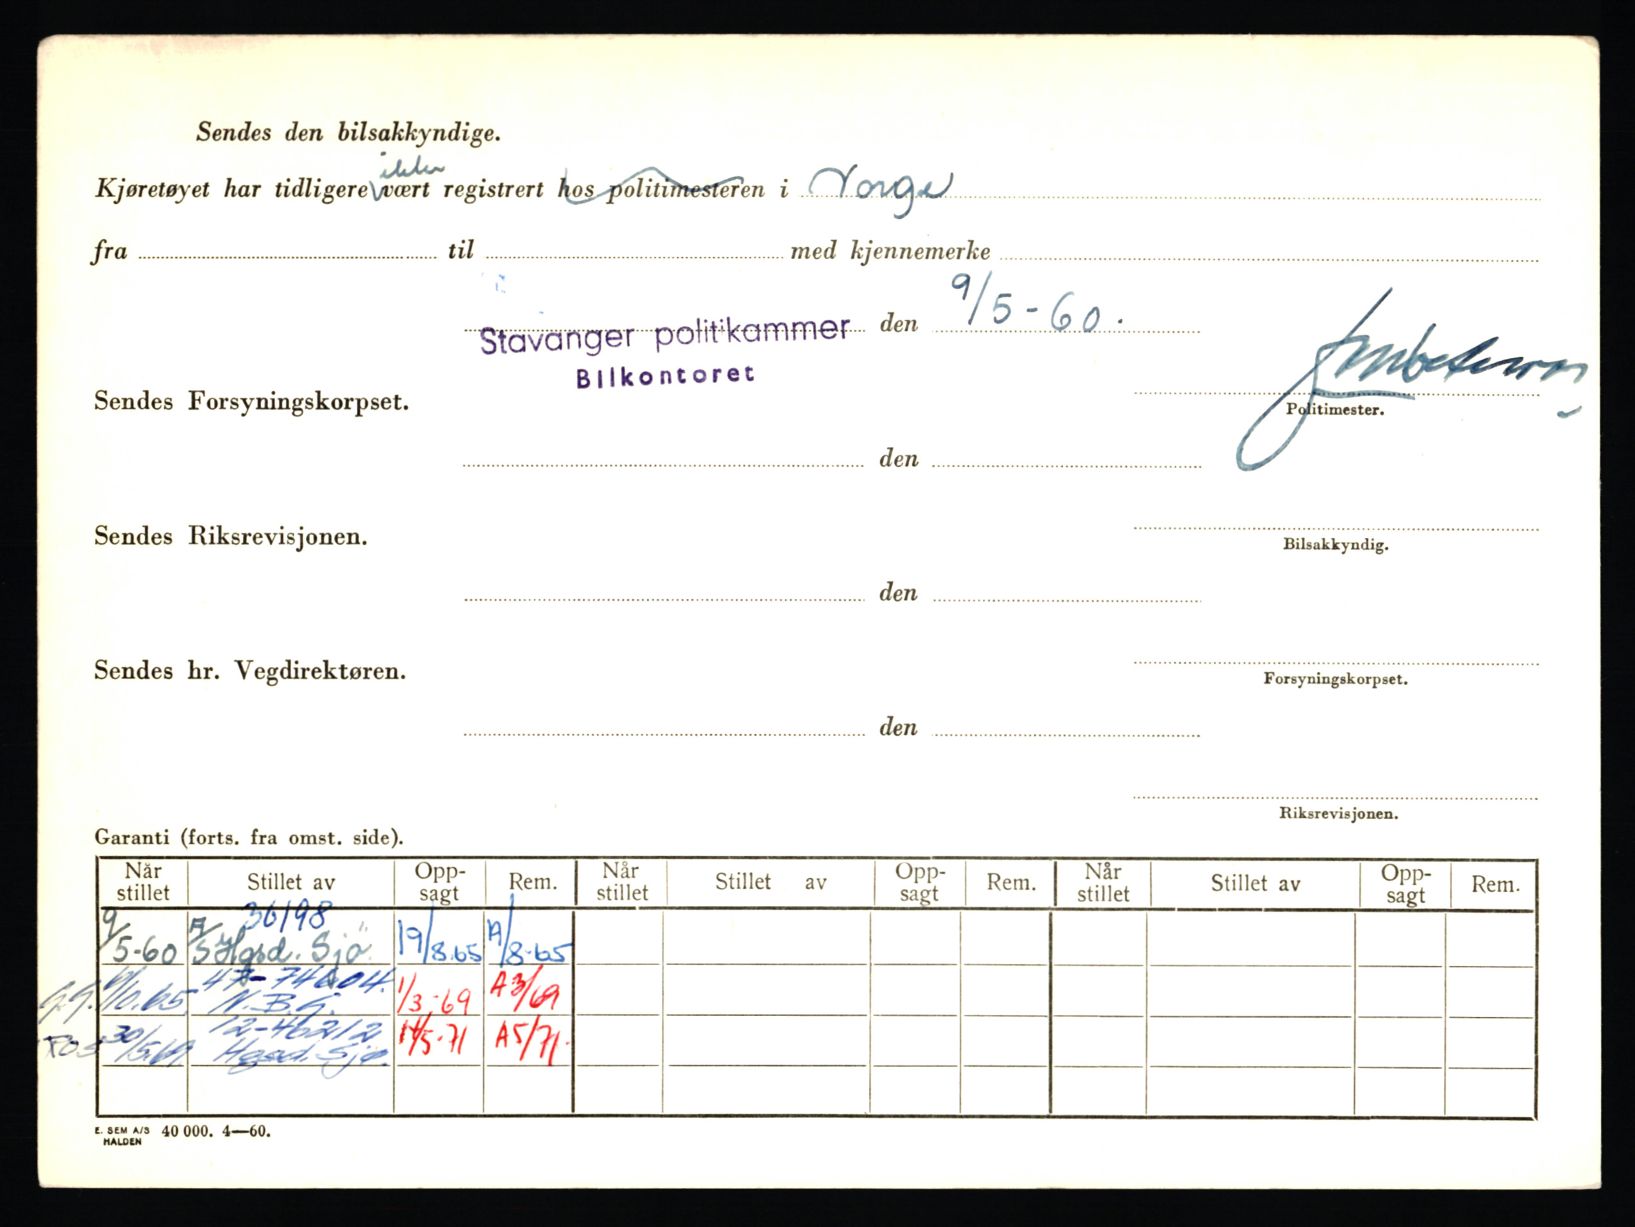 Sendes den bilsakkyndige.
ikke
Kjøretøyet har tidligere vært registrert hos politimesteren i Norge
fra til med kjennemerke
Stavanger politikammer den 9/5-60.
Bilkontoret
Sendes Forsyningskorpset.
Politimester.
den
Sendes Riksrevisjonen.
Bilsakkyndig.
den
Sendes hr. Vegdirektøren.
Forsyningskorpset.
den
Riksrevisjonen.
Garanti (forts. fra omst. side).
Når stillet Stillet av Opp-sagt Rem. Når stillet Stillet av Opp-sagt Rem. Når stillet Stillet av Opp-sagt Rem.
36198
9/5-60 A/S Hgsd. Sjø 19/8.65 A/8-65
47-74604. 1/3-69 A3/69
12-46212
30/5.69 Hgsd. Sjø. 14/5-71 A5/71.
E. SEM A/S HALDEN 40 000. 4—60.